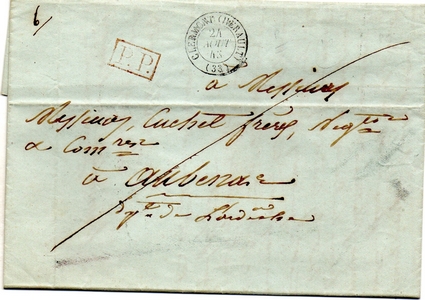 6
P.P.
CLERMONT-L'HÉRAULT (33)
24
AOUT
43
à Messieurs
Messieurs, Cuchet frères, Negts
& Comres
à Aubenas
Dpt. de L'ardèche